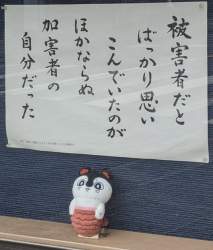 被害者だと
ばっかり思い
こんでいたのが
ほかならぬ
加害者の
自分だった